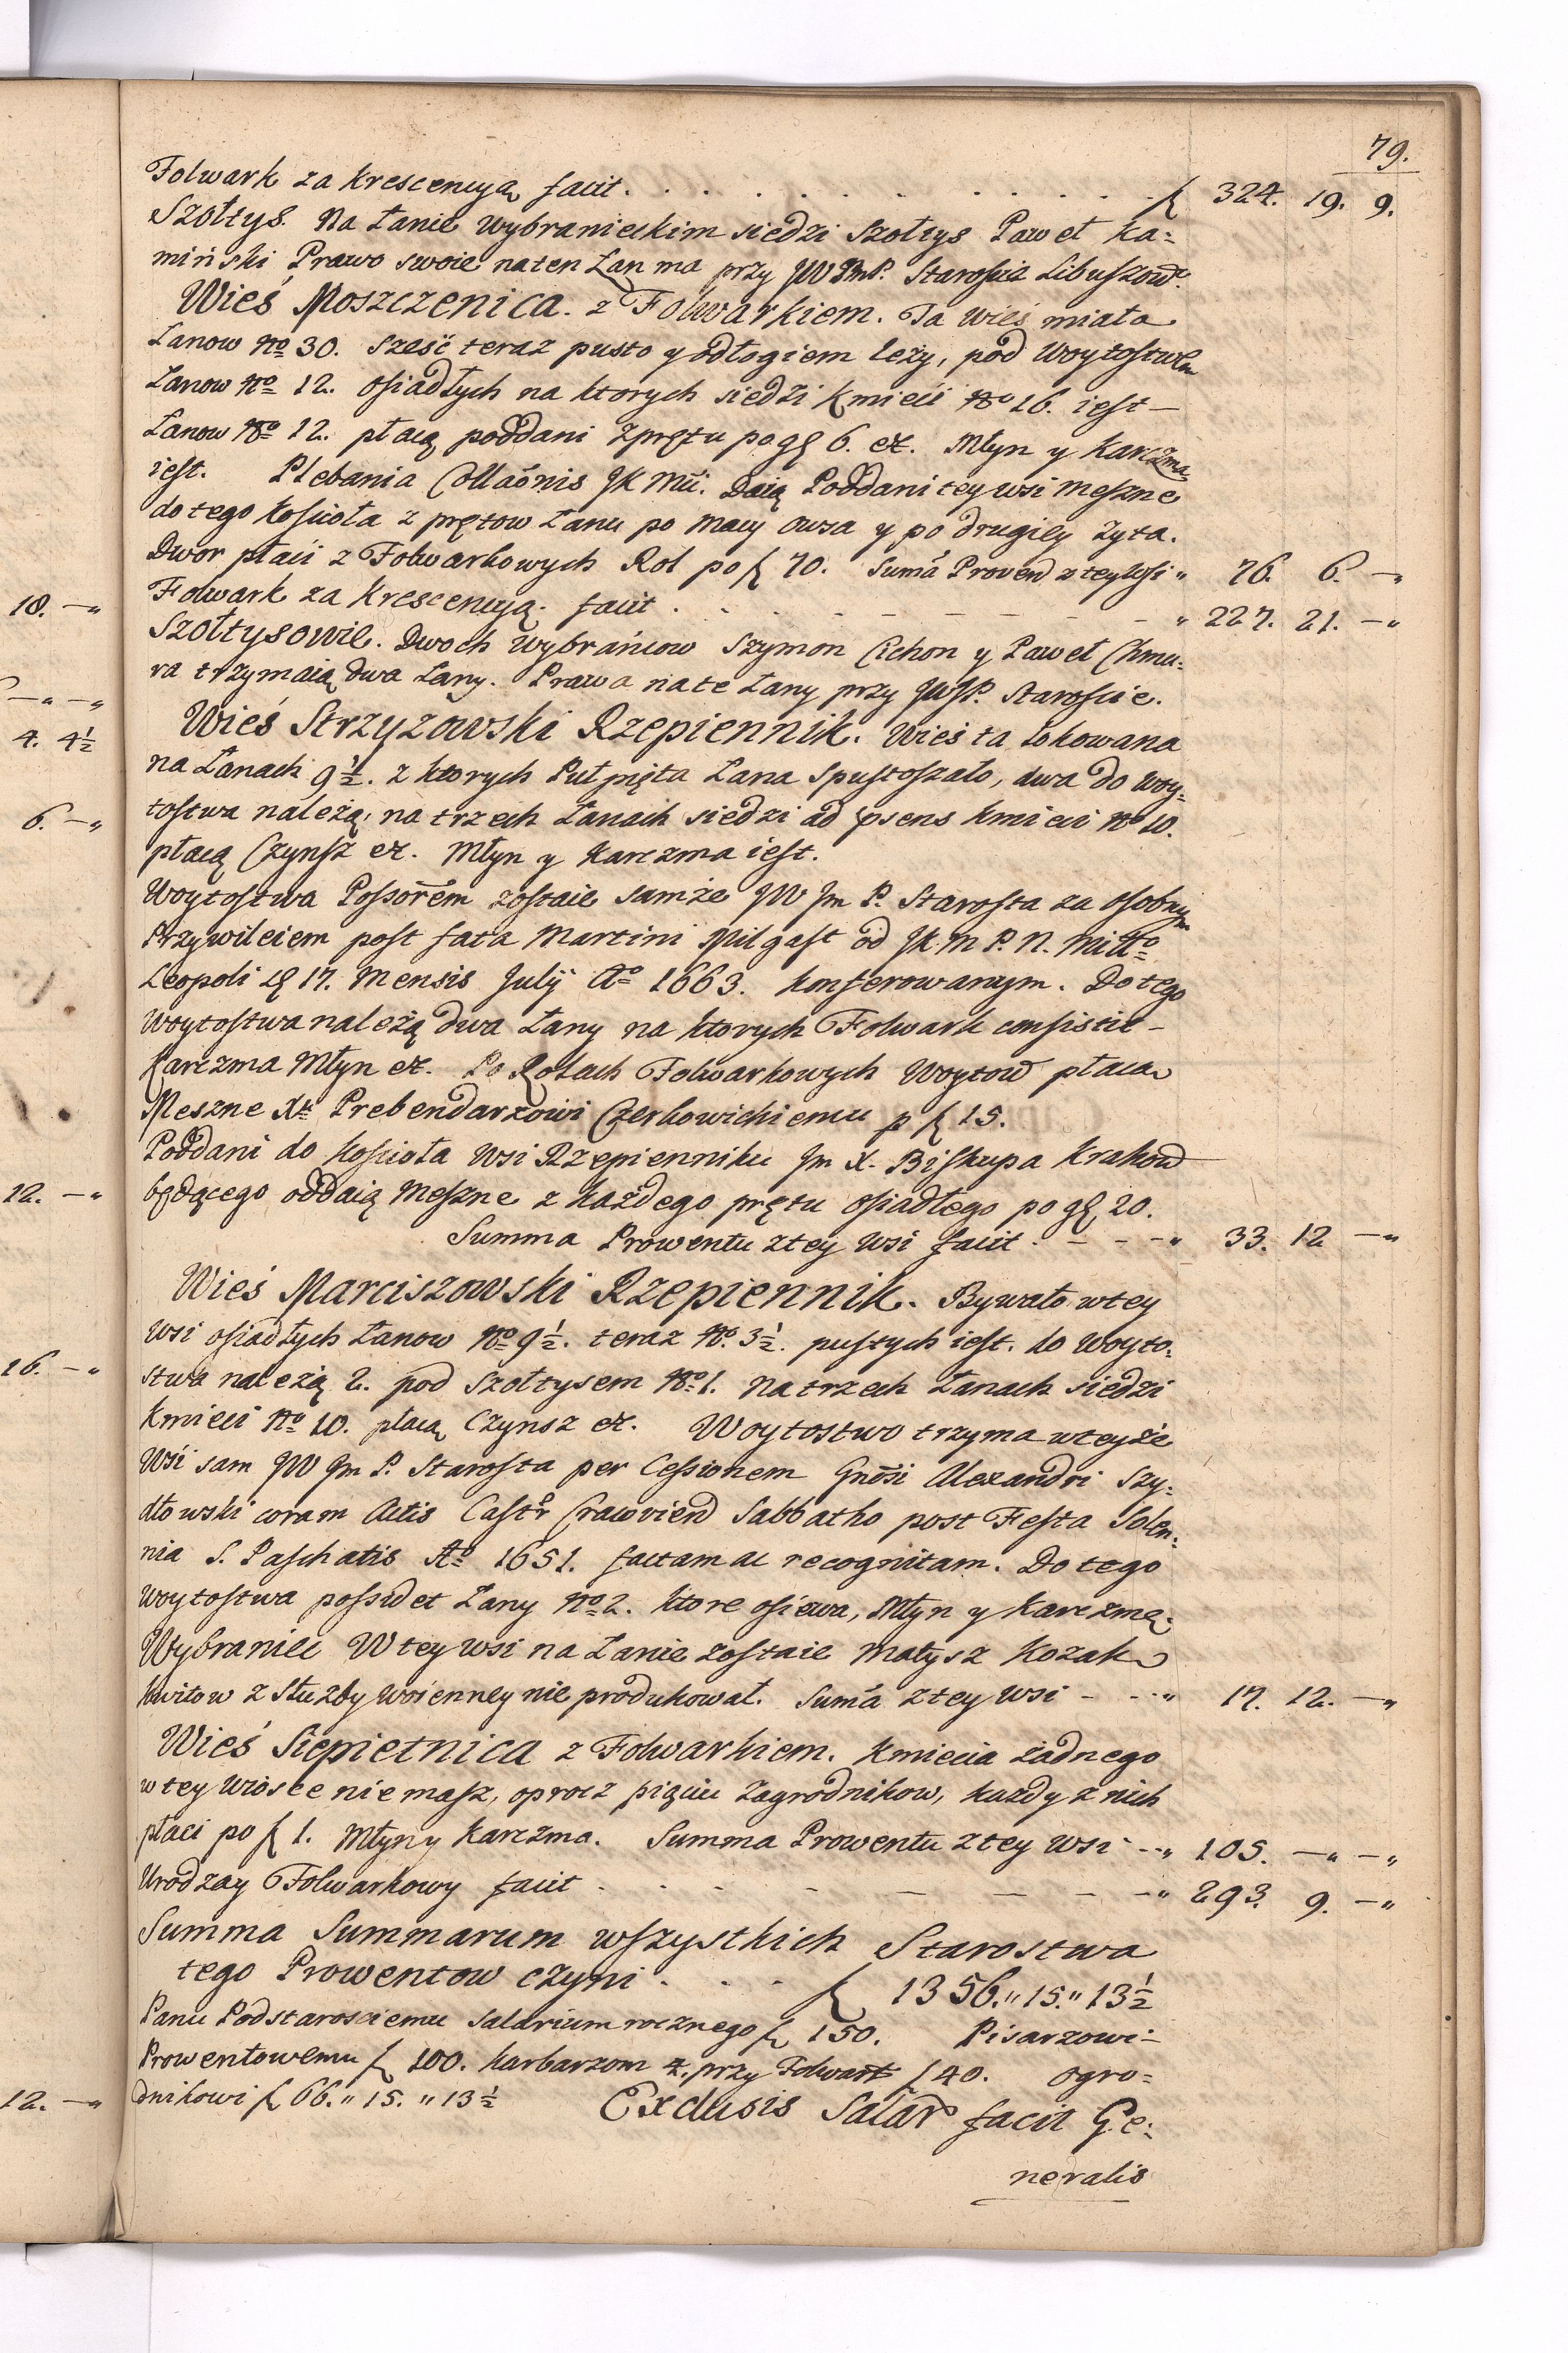 79.
Folwark za Krescencyą facit . . . . . . . . . . . . f 324. 19. 9.
Szołtys. Na Łanie Wybranieckim siedzi Szołtys Paweł Ka=
miński Prawo swoie na ten Łan ma przy JW JmP. Staroscie Libuszow.
Wieś Moszczenica. z Folwarkiem. Ta Wieś miała
Łanow No 30. sześć teraz pusto y odłogiem leży, pod Woytostwem
Łanow No 12. osiadłych na ktorych siedzi Kmieci No 16. iest –
Łanow No 12. płacą poddani z prętu po gę 6. ex. Młyn y Karczma
iest. Plebania Collaõnis JK Mci. Daią Poddani tey wsi Meszne
do tego Kościoła z prętow Łanu po Macy owsa y po drugiey żyta.
Dwor płaci z Folwarkowych Rol po f 70. Suma Provend z tey Wsi „ 76. 6. –„
Folwark za Krescencyą. facit . . . – – – – – „ 227. 21. –„
Szołtysowie. Dwoch Wybrańcow Szymon Cichon y Paweł Chmu=
ra trzymaią dwa Łany. Prawa na te Łany przy JWJP. Staroscie.
Wieś Strzyzowski Rzepiennik. Wieś ta lokowana
na Łanach 9½. z ktorych Pułpięta Łana Spustoszało, dwa do Woy=
tostwa należą, na trzech Łanach siedzi ad psens Kmieci No 10.
płacą Czynsz ex. Młyn y Karczma iest.
Woytostwa Possorem zostaie samże JW Jm P. Starosta za osobnym
Przywileiem post fata Martini Milgast od JK M P. N. Miłło
Leopoli 17. Mensis Julij Ao 1663. konferowanym. Do tego
Woytostwa należą dwa Łany na ktorych Folwark consistit –
Karczma Młyn ex. Po Rolach Folwarkowych Woytow płaca
Meszne Xu Prebendarzowi Czerkowickiemu p f 15.
Poddani do Kościoła Wsi Rzepienniku Jm X. Biskupa Krakow
będącego oddaią Meszne z każdego prętu osiadłego po gę 20.
Summa Prowentu z tey Wsi facit . – – –„ 33. 12 –„
Wieś Marciszowski Rzepiennik. Bywało w tey
Wsi osiadłych Łanow No 9½. teraz No. 3½. pustych iest. do Woyto=
stwa należą 2. pod Szołtysem No 1. Na trzech Łanach siedzi
Kmieci No 10. płacą Czynsz ex. Woytostwo trzyma w teyże
Wsi sam JW Jm P. Starosta per Cessionem Gnõsi Alexandri Szy=
dłowski coram Actis Castr Cracovien Sabbatho post Festa Solen=
nia S. Paschatis Ao 1651. factam ac recognitam. Do tego
Woytostwa possidet Łany No 2. ktore osiewa, Młyn y Karczmą.
Wybraniec W tey wsi na Łanie zostaie Matysz Kozak
kwitow z Służby Woienney nie produkował. Suma z tey Wsi – – –„ 17. 12. –„
Wieś Siepietnica z Folwarkiem. Kmiecia żadnego
w tey Wiosce nie masz, oprocz pięciu Zagrodnikow, każdy z nich
płaci po f 1. Młyn y Karczma. Summa Prowentu z tey Wsi – –„ 105. –„ –„
Urodzay Folwarkowy facit . . . – – – – –„ 293. 9. –„
Summa Summarum wszystkich Starostwa
tego Prowentow czyni . . . . f 1356.„ 15.„ 13½
Panu Podstarosciemu Salarium rocznego f 150. Pisarzowi –
Prowentowemu f 100. Karbarzom 4. przy Folwark f 40. ogro=
dnikowi f 66.„ 15.„ 13½ Exclusis Salar facit Ge=
neralis
18. –„
–„ –„
4. 4½
6. –„
12. –„
16. –„
12. –„